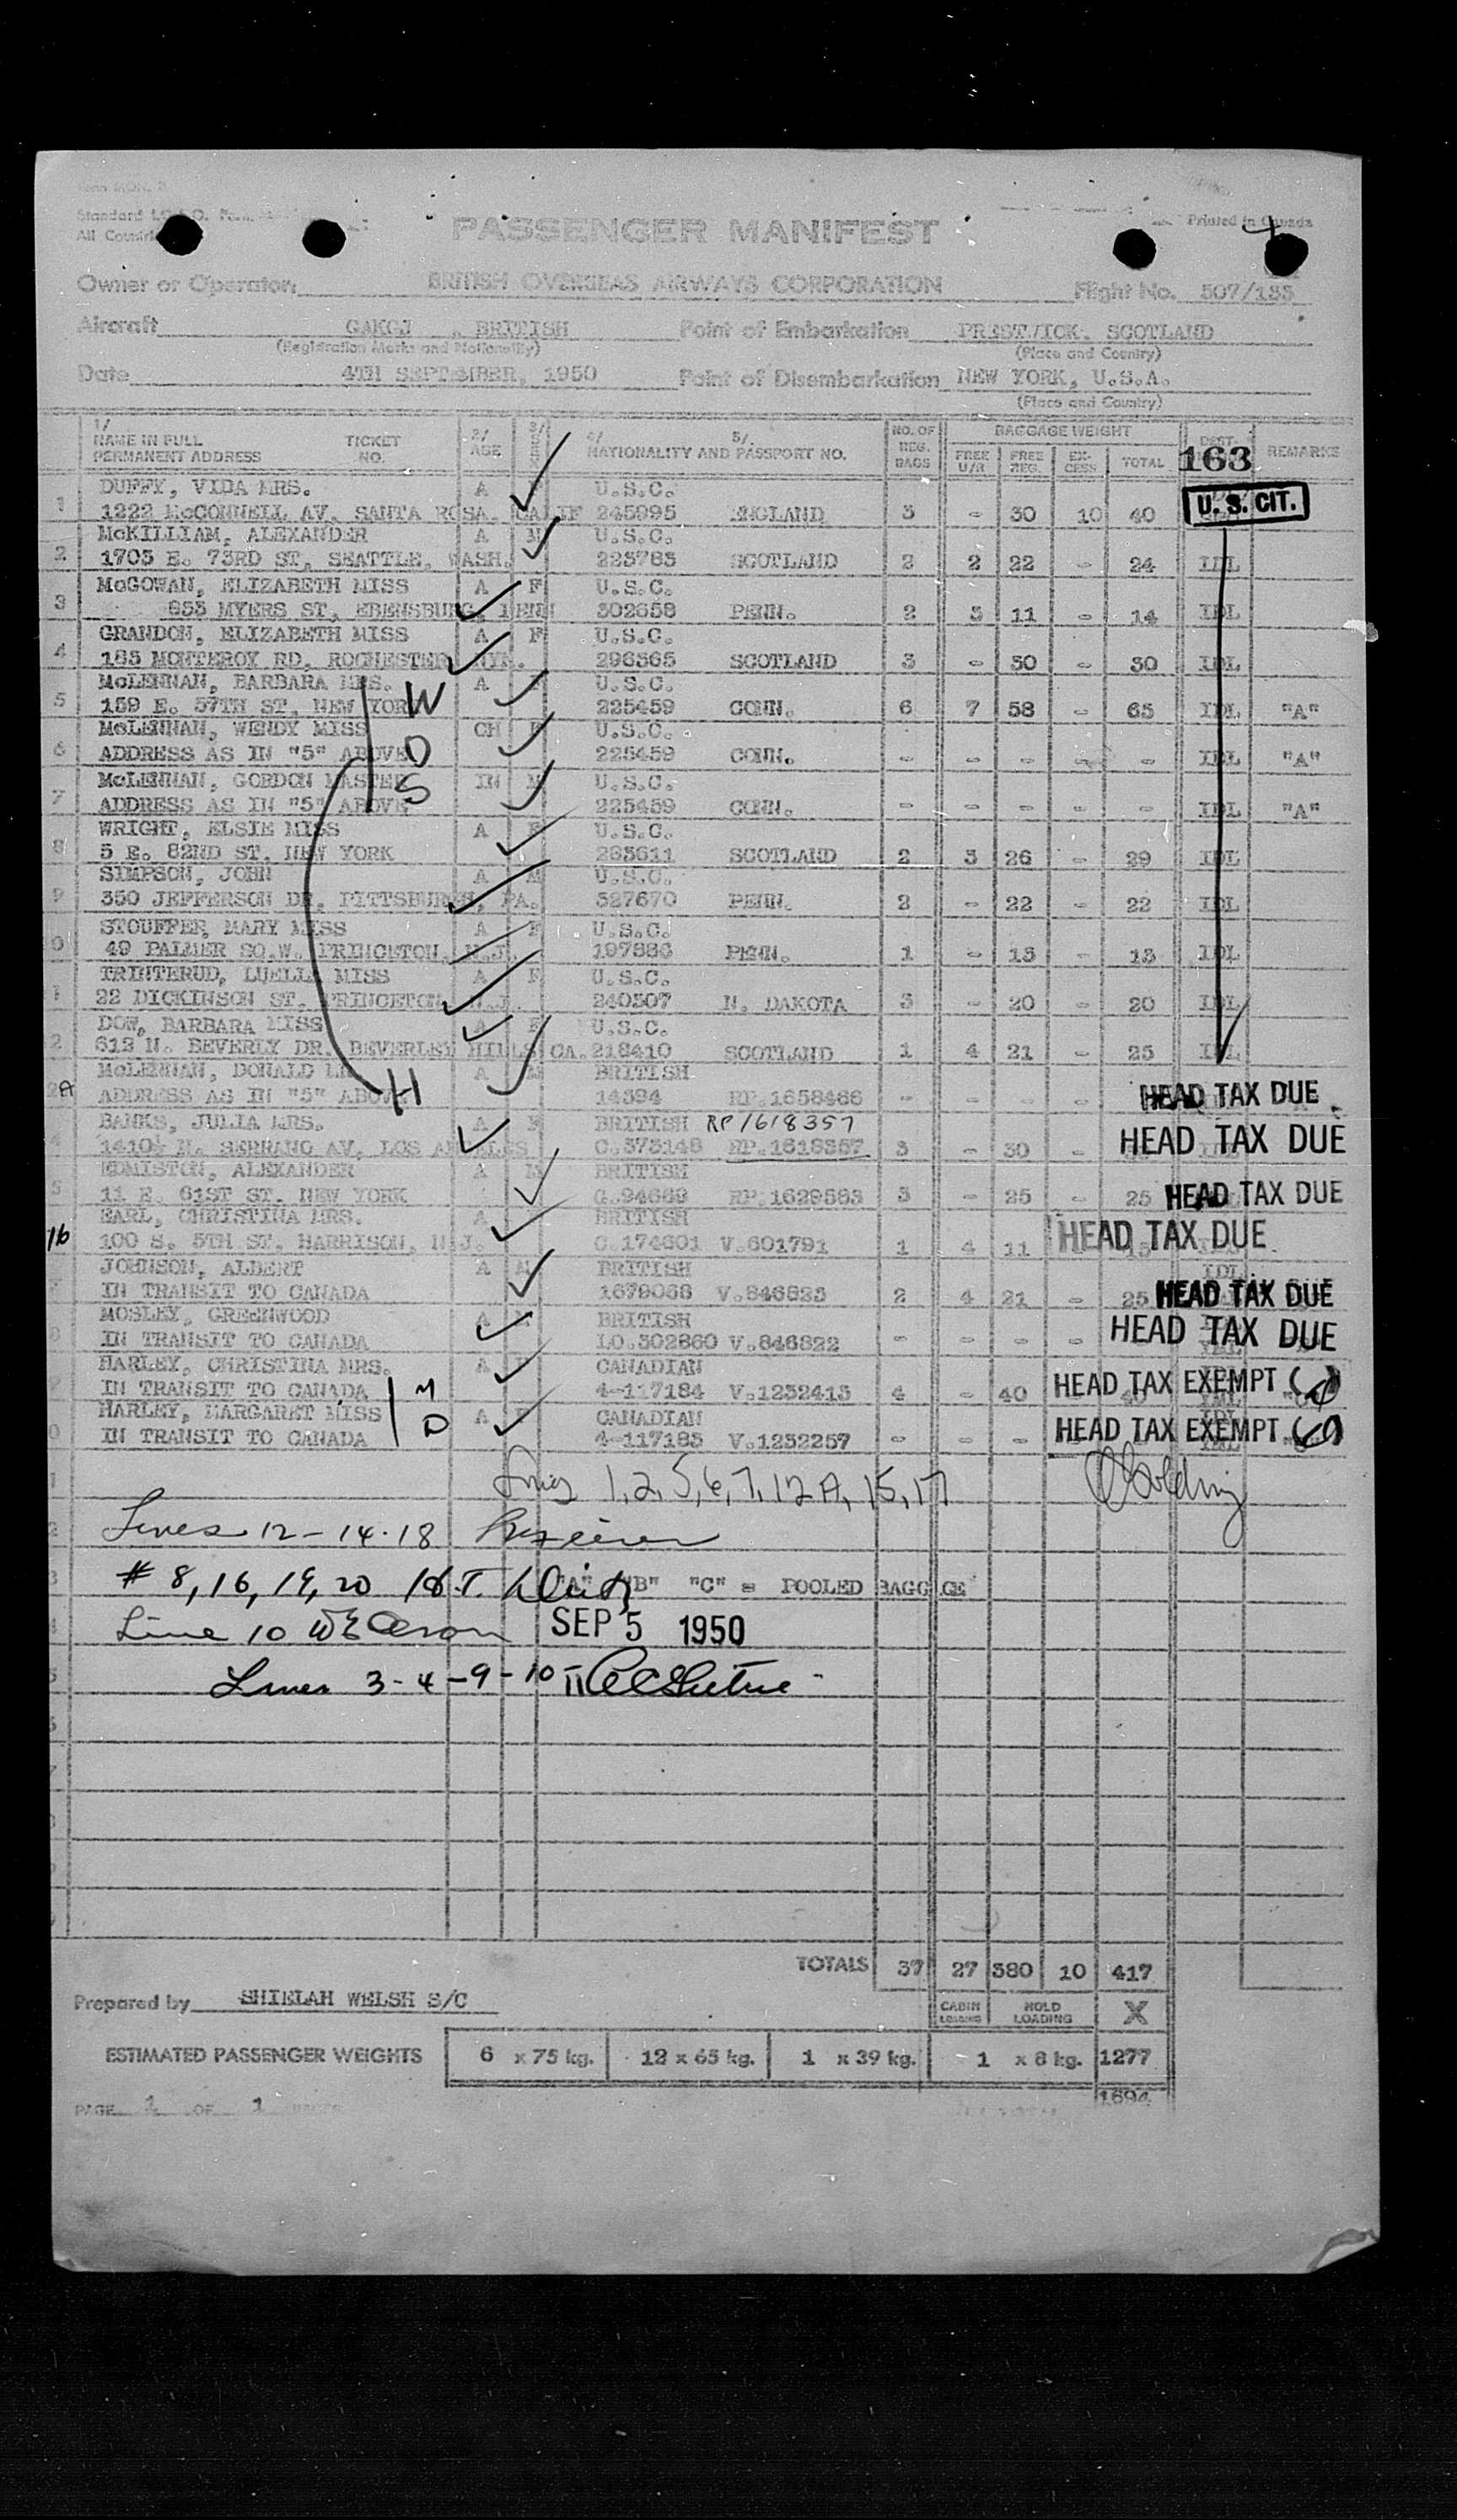 Standard I.C.A.O.
All Countries
Printed in Canada
PASSENGER MANIFEST
Owner or Operator BRITISH OVERSEAS AIRWAYS CORPORATION Flight No. 507/133
Aircraft GAKGJ , BRITISH Point of Embarkation PRESTWICK, SCOTLAND
(Registration Marks and Nationality) (Place and Country)
Date 4TH SEPTEMBER, 1950 Point of Disembarkation NEW YORK, U.S.A.
(Place and Country)
1/ 2/ 3/ 4/ 5/. NO. OF BAGGAGE WEIGHT DEST-
NAME IN FULL TICKET AGE SEX NATIONALITY AND PASSPORT NO. REG. FREE FREE EX- TOTAL 163 REMARKS
PERMANENT ADDRESS NO. BAGS U/R REG. CESS
DUFFY, VIDA MRS. A F U.S.C. U. S. CIT.
1 1222 McCONNELL AV. SANTA ROSA. CALIF 245995 ENGLAND 3 - 30 10 40
McKILLIAM, ALEXANDER A M U.S.C.
2 1703 E. 73RD ST, SEATTLE, WASH. 223783 SCOTLAND 2 2 22 - 24 IDL
McGOWAN, ELIZABETH MISS A F U.S.C.
3 853 MYERS ST, EBENSBURG, PENN 302658 PENN. 2 3 11 - 14 IDL
GRANDON, ELIZABETH MISS A F U.S.C.
4 185 MONTEROY RD, ROCHESTER N.Y. 296365 SCOTLAND 3 - 30 - 30 IDL
McLENNAN, BARBARA MRS. W A F U.S.C.
5 159 E. 57TH ST, NEW YORK 225459 CONN. 6 7 58 - 65 IDL "A"
McLENNAN, WENDY MISS CH F U.S.C.
6 ADDRESS AS IN "5" ABOVE D 225459 CONN. - - - - - IDL "A"
McLENNAN, GORDON MASTER S IN M U.S.C.
7 ADDRESS AS IN "5" ABOVE 225459 CONN. - - - - - IDL "A"
WRIGHT, ELSIE MISS A F U.S.C.
8 5 E. 82ND ST. NEW YORK 263611 SCOTLAND 2 3 26 - 29 IDL
SIMPSON, JOHN A M U.S.C.
9 350 JEFFERSON DR. PITTSBURGH, PA. 327670 PENN. 2 - 22 - 22 IDL
STOUFFER, MARY MISS A F U.S.C.
0 49 PALMER SQ.W. PRINCETON, N.J. 197886 PENN. 1 - 13 - 13 IDL
TRINTERUD, LUELLA MISS A F U.S.C.
1 22 DICKINSON ST, PRINCETON, N.J. 240307 N. DAKOTA 3 - 20 - 20 IDL
DOW, BARBARA MISS A F U.S.C.
2 613 N. BEVERLY DR. BEVERLEY HILLS CA. 218410 SCOTLAND 1 4 21 - 25 IDL
McLENNAN, DONALD MR. A M BRITISH
2A ADDRESS AS IN "5" ABOVE H 14394 RP.1658466 - - - - HEAD TAX DUE
BANKS, JULIA MRS. A F BRITISH RP1618357
1410½ N. SERRANO AV, LOS ANGELES C.373148 RP.1618357 3 - 30 - HEAD TAX DUE
EDMISTON, ALEXANDER A M BRITISH
5 11 E. 61ST ST. NEW YORK C.94669 RP.1629583 3 - 25 - 25 HEAD TAX DUE
EARL, CHRISTINA MRS. A BRITISH
16 100 S. 5TH ST, HARRISON, N.J. C.174601 V.601791 1 4 11 HEAD TAX DUE
JOHNSON, ALBERT A M BRITISH
IN TRANSIT TO CANADA 1679068 V.846823 2 4 21 - 25 HEAD TAX DUE
MOSLEY, GREENWOOD A M BRITISH
IN TRANSIT TO CANADA LO.302860 V.846822 - - - - HEAD TAX DUE
HARLEY, CHRISTINA MRS. A F CANADIAN
IN TRANSIT TO CANADA M 4-117184 V.1232413 4 - 40 HEAD TAX EXEMPT
HARLEY, MARGARET MISS A F CANADIAN
0 IN TRANSIT TO CANADA D 4-117185 V.1232257 - - - HEAD TAX EXEMPT
Lines 1,2,5,6,7,12A,15,17
Lines 12-14-18
# 8,16,19,20 "A" "B" "C" = POOLED BAGGAGE
Line 10 SEP 5 1950
Lines 3-4-9-10-11
TOTALS 37 27 380 10 417
Prepared by SHIELAH WELSH S/C CABIN LOADING HOLD LOADING X
ESTIMATED PASSENGER WEIGHTS 6 x 75 kg. 12 x 65 kg. 1 x 39 kg. 1 x 8 kg. 1277
PAGE 1 OF 1 1694